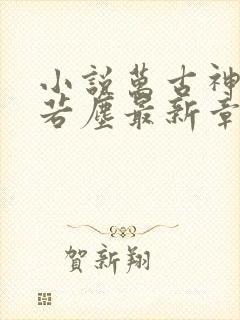 小說萬古神
若塵最新章
賀新翔